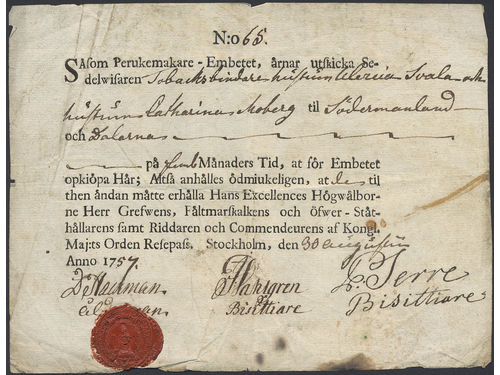 N:o 65.
Såsom Perukemakare-Embetet, årnar utskicka Se-
delwisaren Tobacksbindare hustrun Svala och
hustrun Catharina Moberg til Södermanland
och Dalarnas
på fem Månaders Tid, at för Embetet
opkiöpa Hår; Altså anhålles ödmiukeligen, at des til
then åndan måtte erhålla Hans Excellences Högwälbor-
ne Herr Grefwens, Fältmarskalkens och Öfwer-Ståt-
hållarens samt Riddaren och Commendeurens af Kongl.
Maj:ts Orden Resepass. Stockholm, den 30 augustii
Anno 1757
Ålderman
Bisittiare
P. Serre
Bisittiare